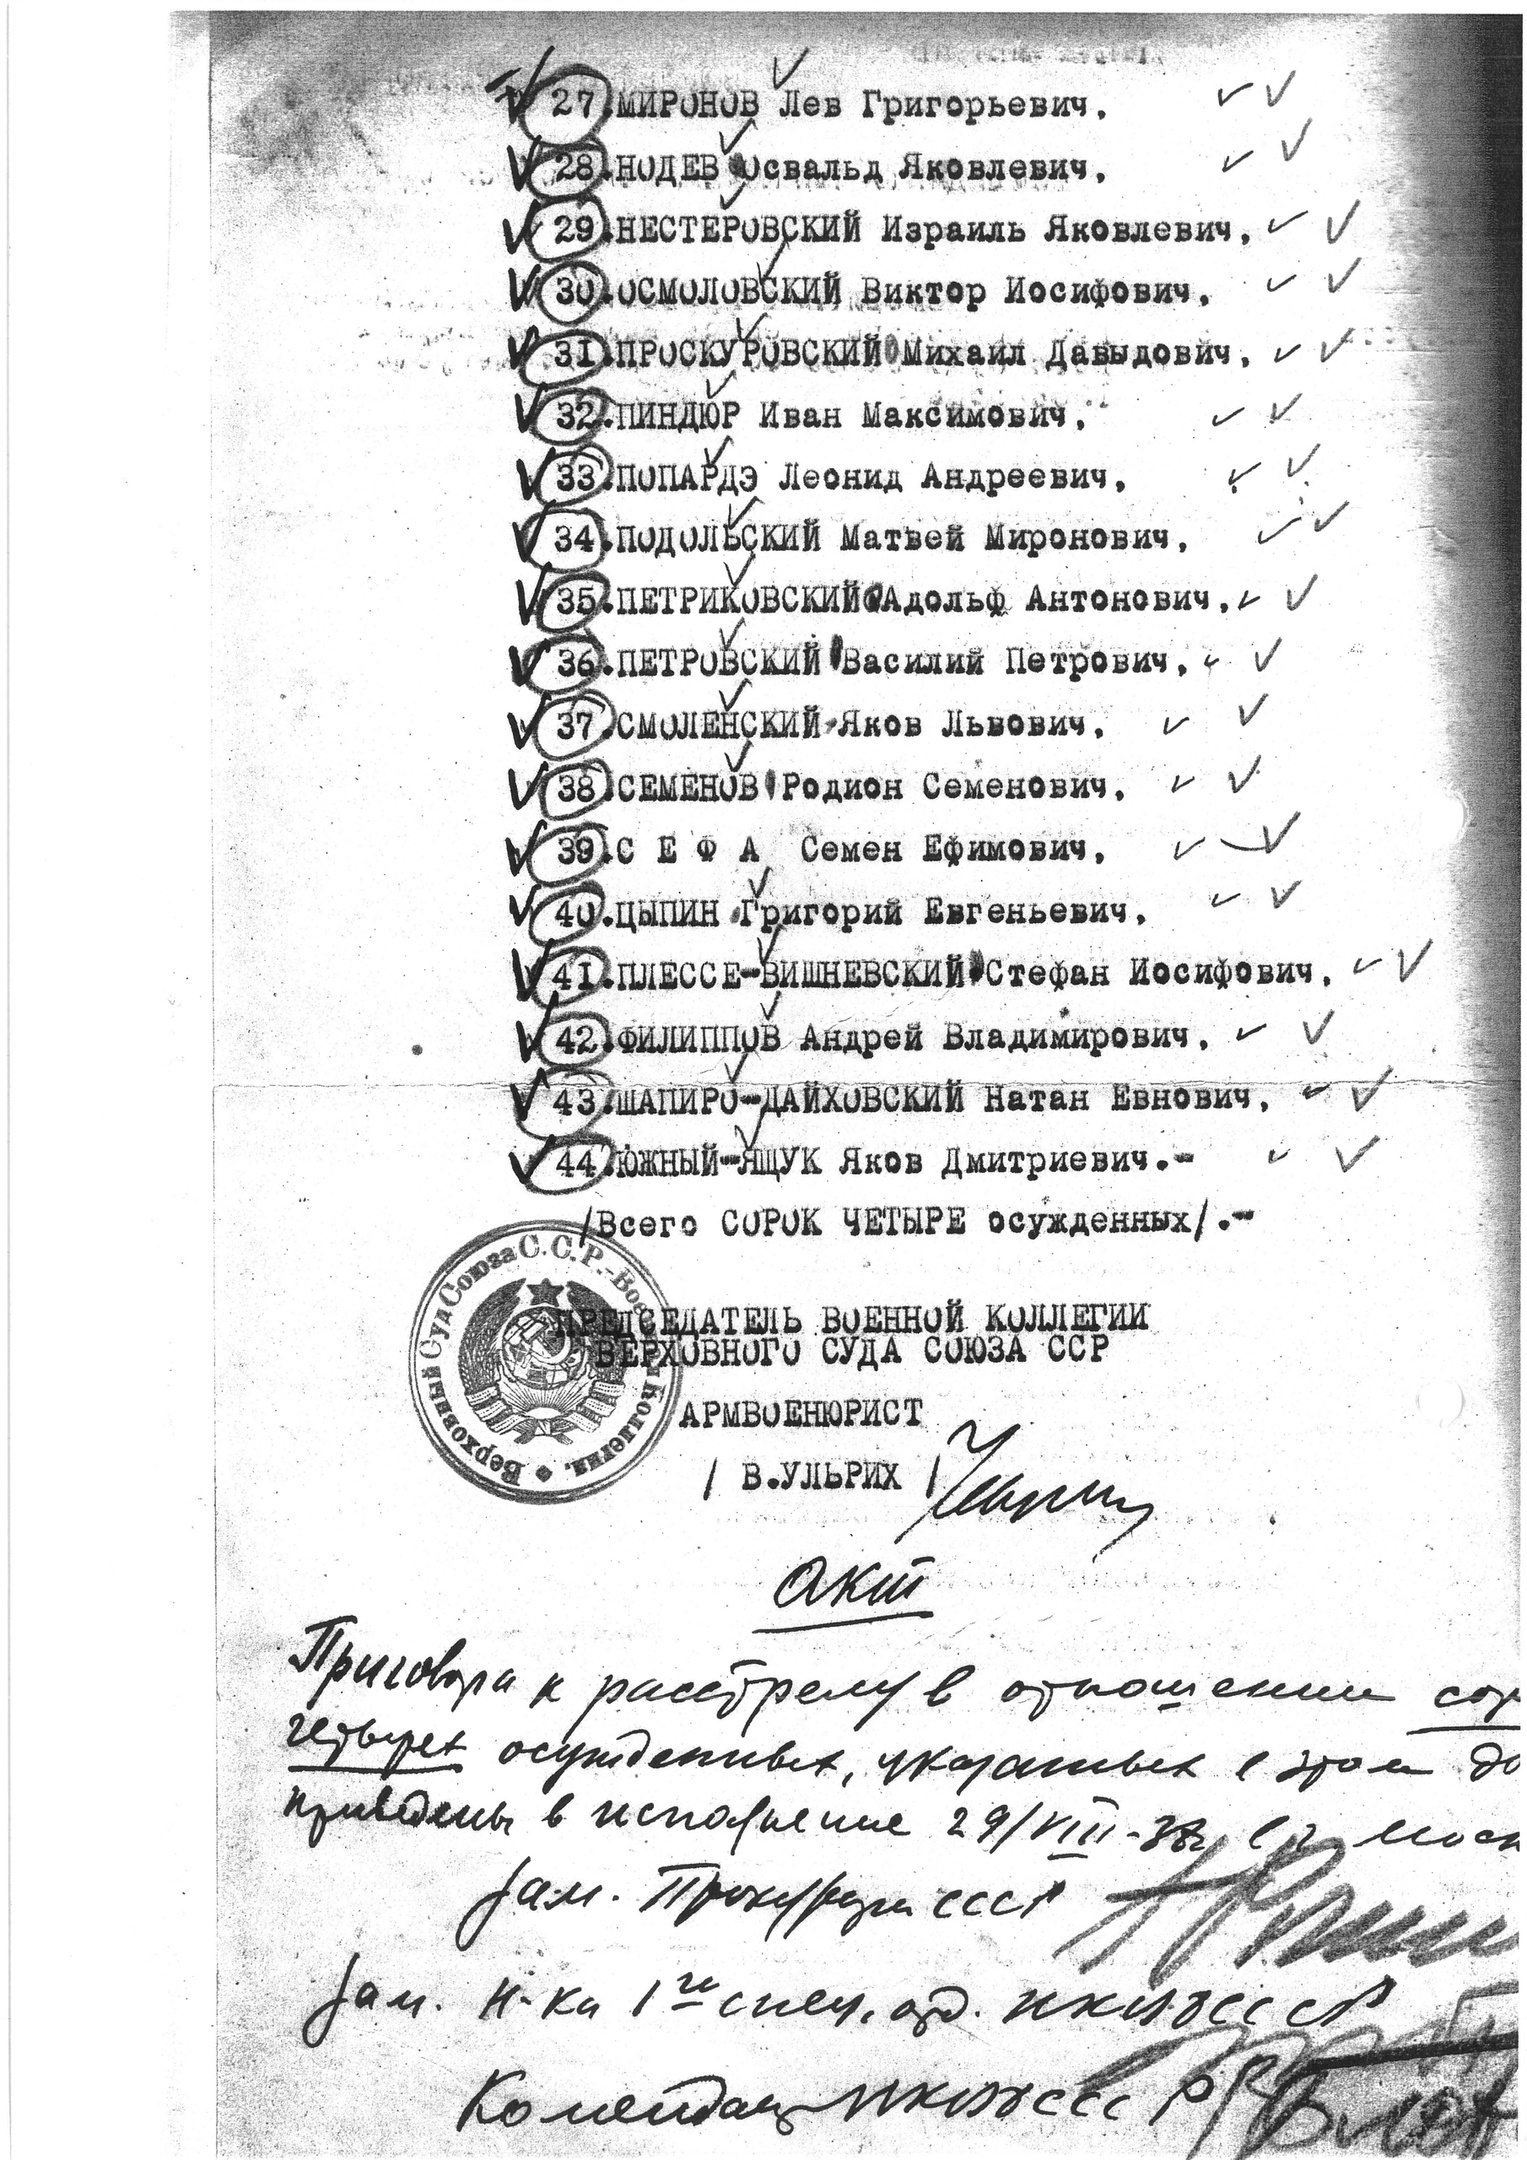 27.МИРОНОВ Лев Григорьевич.
28.НОДЕВ Освальд Яковлевич.
29.НЕСТЕРОВСКИЙ Израиль Яковлевич.
30.ОСМОЛОВСКИЙ Виктор Иосифович.
31.ПРОСКУРОВСКИЙ Михаил Давыдович.
32.ПИНДЮР Иван Максимович.
33.ПОПАРДЭ Леонид Андреевич.
34.ПОДОЛЬСКИЙ Матвей Миронович.
35.ПЕТРИКОВСКИЙ Адольф Антонович.
36.ПЕТРОВСКИЙ Василий Петрович.
37.СМОЛЕНСКИЙ Яков Львович.
38.СЕМЕНОВ Родион Семенович.
39.С Е Ф А Семен Ефимович.
40.ЦЫПИН Григорий Евгеньевич.
41.ПЛЕССЕ-ВИШНЕВСКИЙ Стефан Иосифович.
42.ФИЛИППОВ Андрей Владимирович.
43.ШАПИРО-ДАЙХОВСКИЙ Натан Евнович.
44.ЮЖНЫЙ-ЯЩУК Яков Дмитриевич.-
/Всего СОРОК ЧЕТЫРЕ осужденных/.-
Верховный Суд Союза С.С.Р.-Вое Коллегия.
ПРЕДСЕДАТЕЛЬ ВОЕННОЙ КОЛЛЕГИИ
ВЕРХОВНОГО СУДА СОЮЗА ССР
АРМВОЕНЮРИСТ
/ В.УЛЬРИХ /
Акт
Приговора к расстрелу в отношении сор
четырех осужденных, указанных в этом до
приведены в исполнение 29/VIII-38г. в г. Моск
Зам. Прокурора СССР
Зам. н-ка 1го спец. отд. НКВД СССР
Комендант НКВД СССР